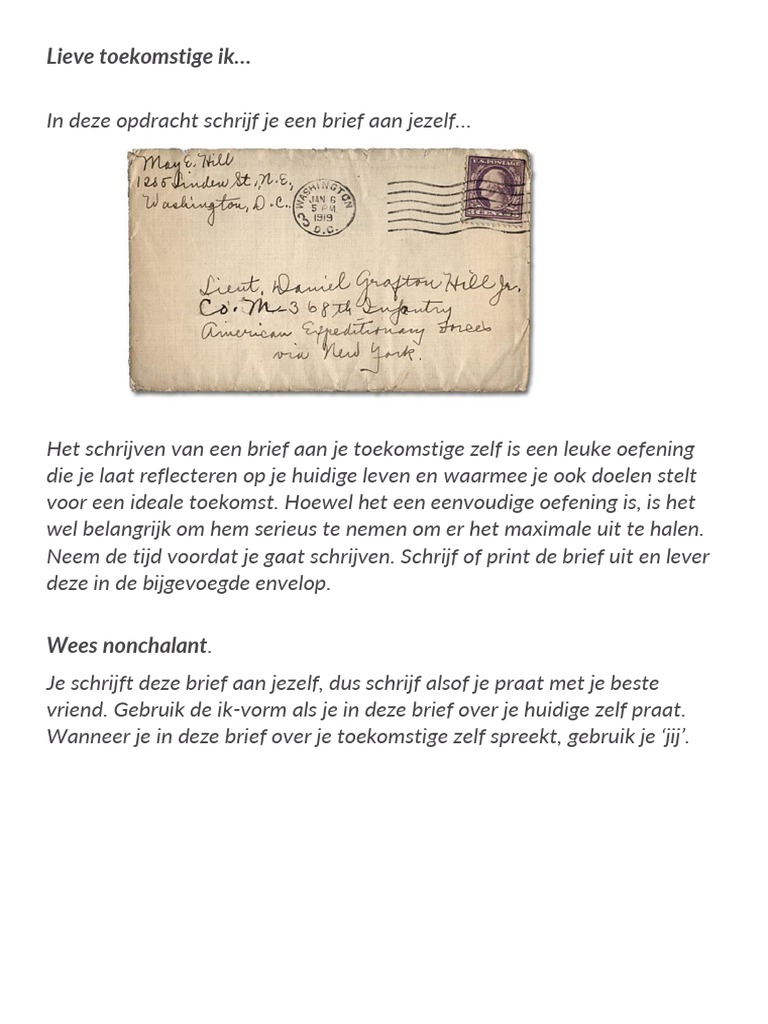 Lieve toekomstige ik…
In deze opdracht schrijf je een brief aan jezelf…
May E. Hill
1205 Linden St., N.E.,
Washington, D.C.
WASHINGTON
JAN 6
5 PM
1919
D.C.
3
U.S. POSTAGE
Lieut. Daniel Grafton Hill Jr.
Co. M-368th Infantry
American Expeditionary Forces
via New York.
Het schrijven van een brief aan je toekomstige zelf is een leuke oefening
die je laat reflecteren op je huidige leven en waarmee je ook doelen stelt
voor een ideale toekomst. Hoewel het een eenvoudige oefening is, is het
wel belangrijk om hem serieus te nemen om er het maximale uit te halen.
Neem de tijd voordat je gaat schrijven. Schrijf of print de brief uit en lever
deze in de bijgevoegde envelop.
Wees nonchalant.
Je schrijft deze brief aan jezelf, dus schrijf alsof je praat met je beste
vriend. Gebruik de ik-vorm als je in deze brief over je huidige zelf praat.
Wanneer je in deze brief over je toekomstige zelf spreekt, gebruik je ‘jij’.